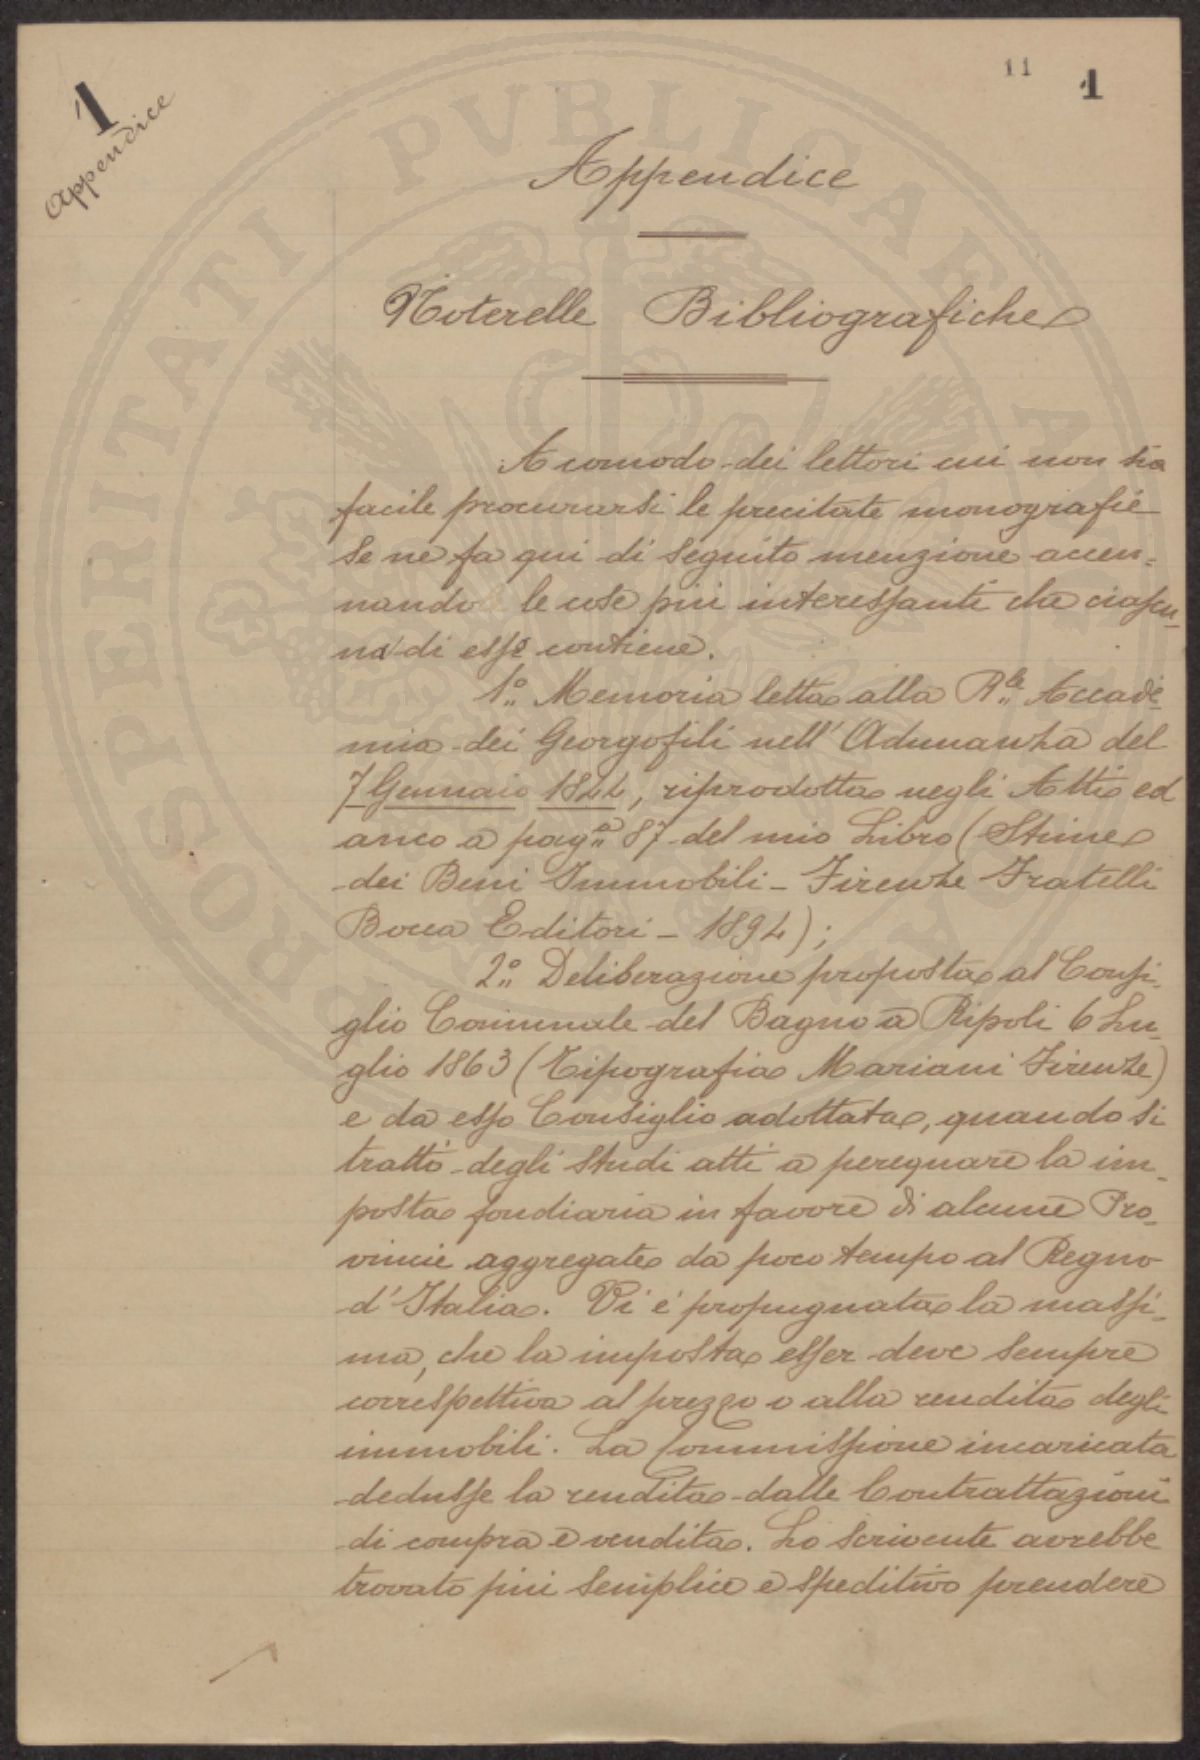 1
Appendice
11 1
Appendice
Noterelle Bibliografiche
A comodo dei lettori cui non sia
facile procurarsi le precitate monografie
se ne fa qui di seguito menzione accen-
nando le cose più interessanti che ciascu-
na di esse contiene.
1.° Memoria letta alla R.le Accade-
mia dei Georgofili nell' Adunanza del
7 Gennaio 1844, riprodotta negli Atti ed
anco a pag.a 87 del mio Libro (Stime
dei Beni Immobili - Firenze Fratelli
Bocca Editori - 1894);
2.° Deliberazione proposta al Consi-
glio Comunale del Bagno a Ripoli 6 Lu-
glio 1863 (Tipografia Mariani Firenze)
e da esso Consiglio adottata, quando si
trattò degli studi atti a perequare la im-
posta fondiaria in favore di alcune Pro-
vincie aggregate da poco tempo al Regno
d'Italia. Vi è propugnata la massi-
ma, che la imposta esser deve sempre
correspettiva al prezzo o alla rendita degli
immobili. La Commissione incaricata
dedusse la rendita dalle Contrattazioni
di compra e vendita. Lo scrivente avrebbe
trovato più semplice e speditivo prendere
PROSPERITATI PVBLICAE AVGENDAE